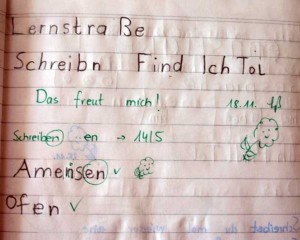 Lernstraße
Schreibn Find Ich Tol
Das freut mich! 18.11.
Schreiben en → 14/5
Amenisen ✓
Ofen ✓